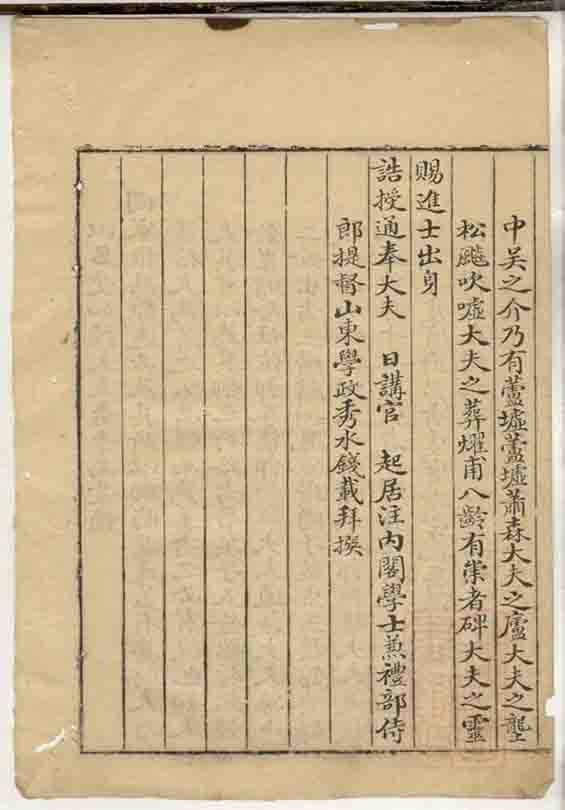 中吳之介乃有蘆墟蘆墟蕭森大夫之廬大夫之壟
松颸吹噓大夫之葬燿甫八齡有崇者碑大夫之靈
賜進士出身
誥授通奉大夫 日講官 起居注內閣學士兼禮部侍
郎提督山東學政秀水錢載拜撰